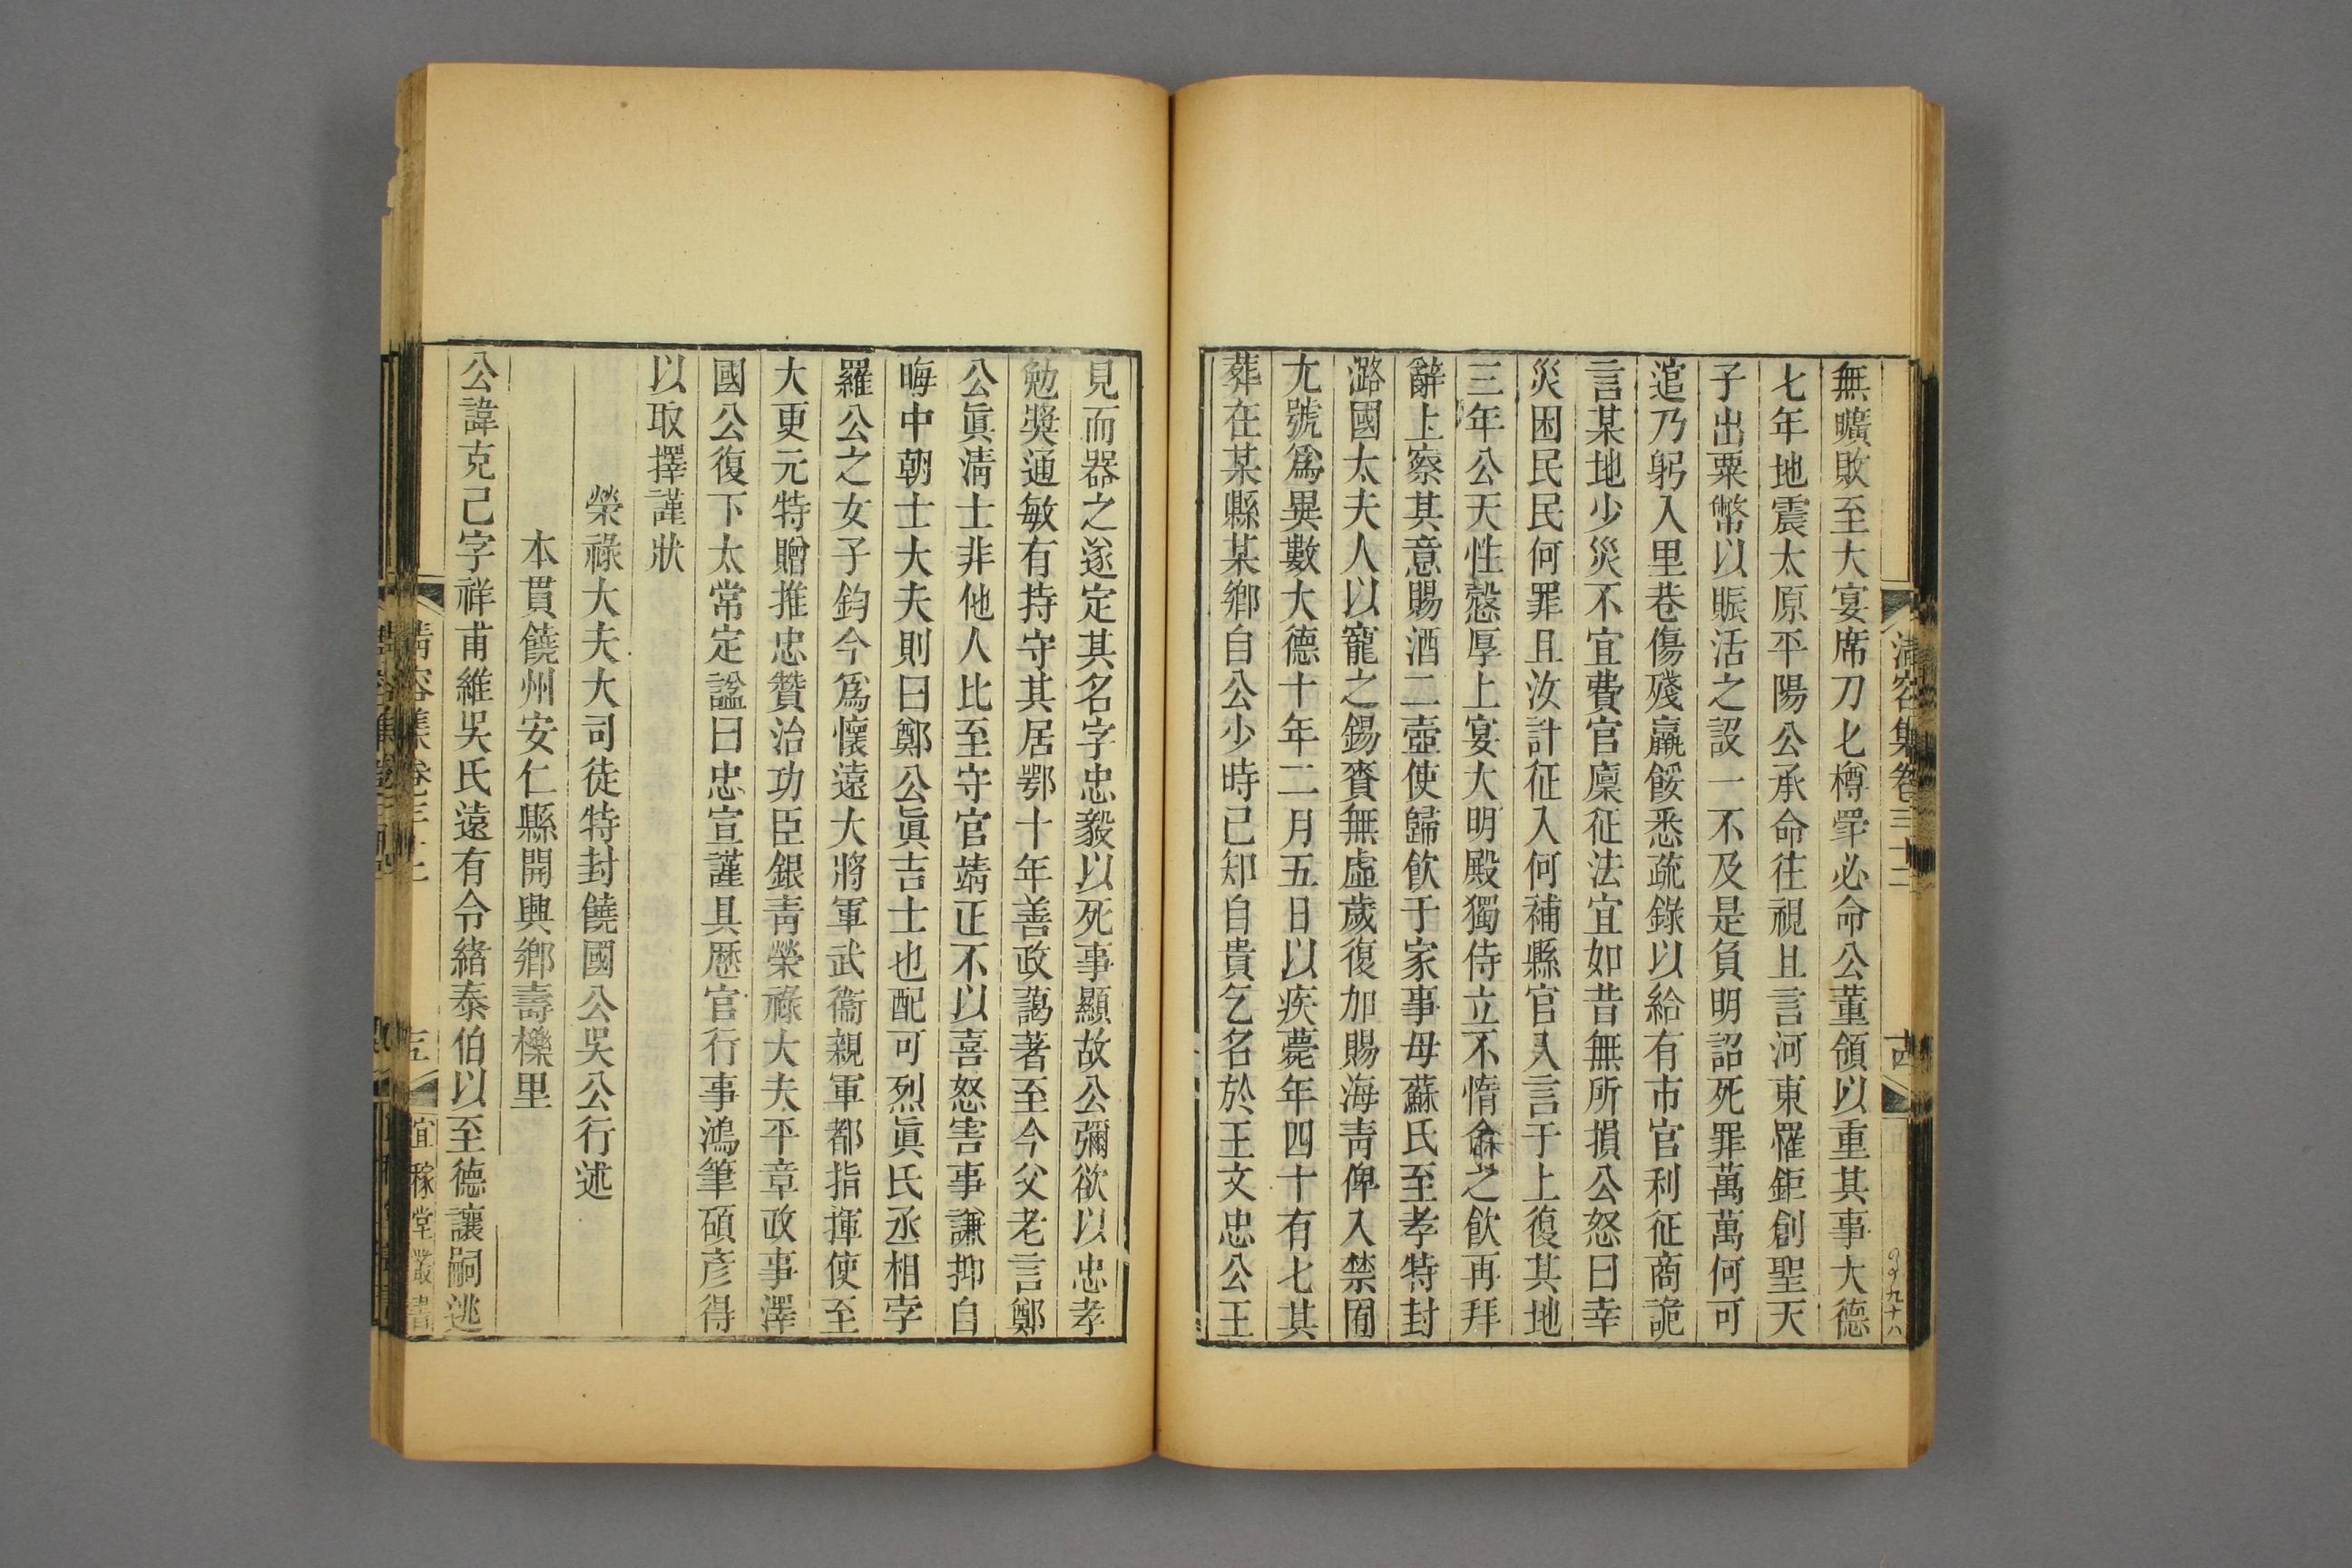 清容集卷三十二
無曠敗至大宴席刀匕樽斝必命公董領以重其事大德
七年地震太原平陽公承命往視且言河東罹鉅創聖天
子出粟幣以賑活之設一不及是負明詔死罪萬萬何可
逭乃躬入里巷傷殘羸餒悉疏錄以給有市官利征商詭
言某地少災不宜費官廩征法宜如昔無所損公怒曰幸
災困民民何罪且汝計征入何補縣官入言于上復其地
三年公天性慤厚上宴大明殿獨侍立不惰龢之飮再拜
辭上察其意賜酒二壺使歸飮于家事母蘇氏至孝特封
潞國太夫人以寵之錫賚無虛歲復加賜海靑俾入禁囿
尤號爲異數大德十年二月五日以疾薨年四十有七其
葬在某縣某鄕自公少時已知自貴乞名於王文忠公王
見而器之遂定其名字忠毅以死事顯故公彌欲以忠孝
勉奬通敏有持守其居鄂十年善政藹著至今父老言鄭
公眞淸士非他人比至守官靖正不以喜怒害事謙抑自
晦中朝士大夫則曰鄭公眞吉士也配可烈眞氏丞相孛
羅公之女子鈞今爲懷遠大將軍武衞親軍都指揮使至
大更元特贈推忠贊治功臣銀靑榮祿大夫平章政事澤
國公復下太常定諡曰忠宣謹具歷官行事鴻筆碩彥得
以取擇謹狀
榮祿大夫大司徒特封饒國公吳公行述
本貫饒州安仁縣開興鄕壽櫟里
公諱克己字祥甫維吳氏遠有令緖泰伯以至德讓嗣逃
清容集卷三十二
宜稼堂叢書